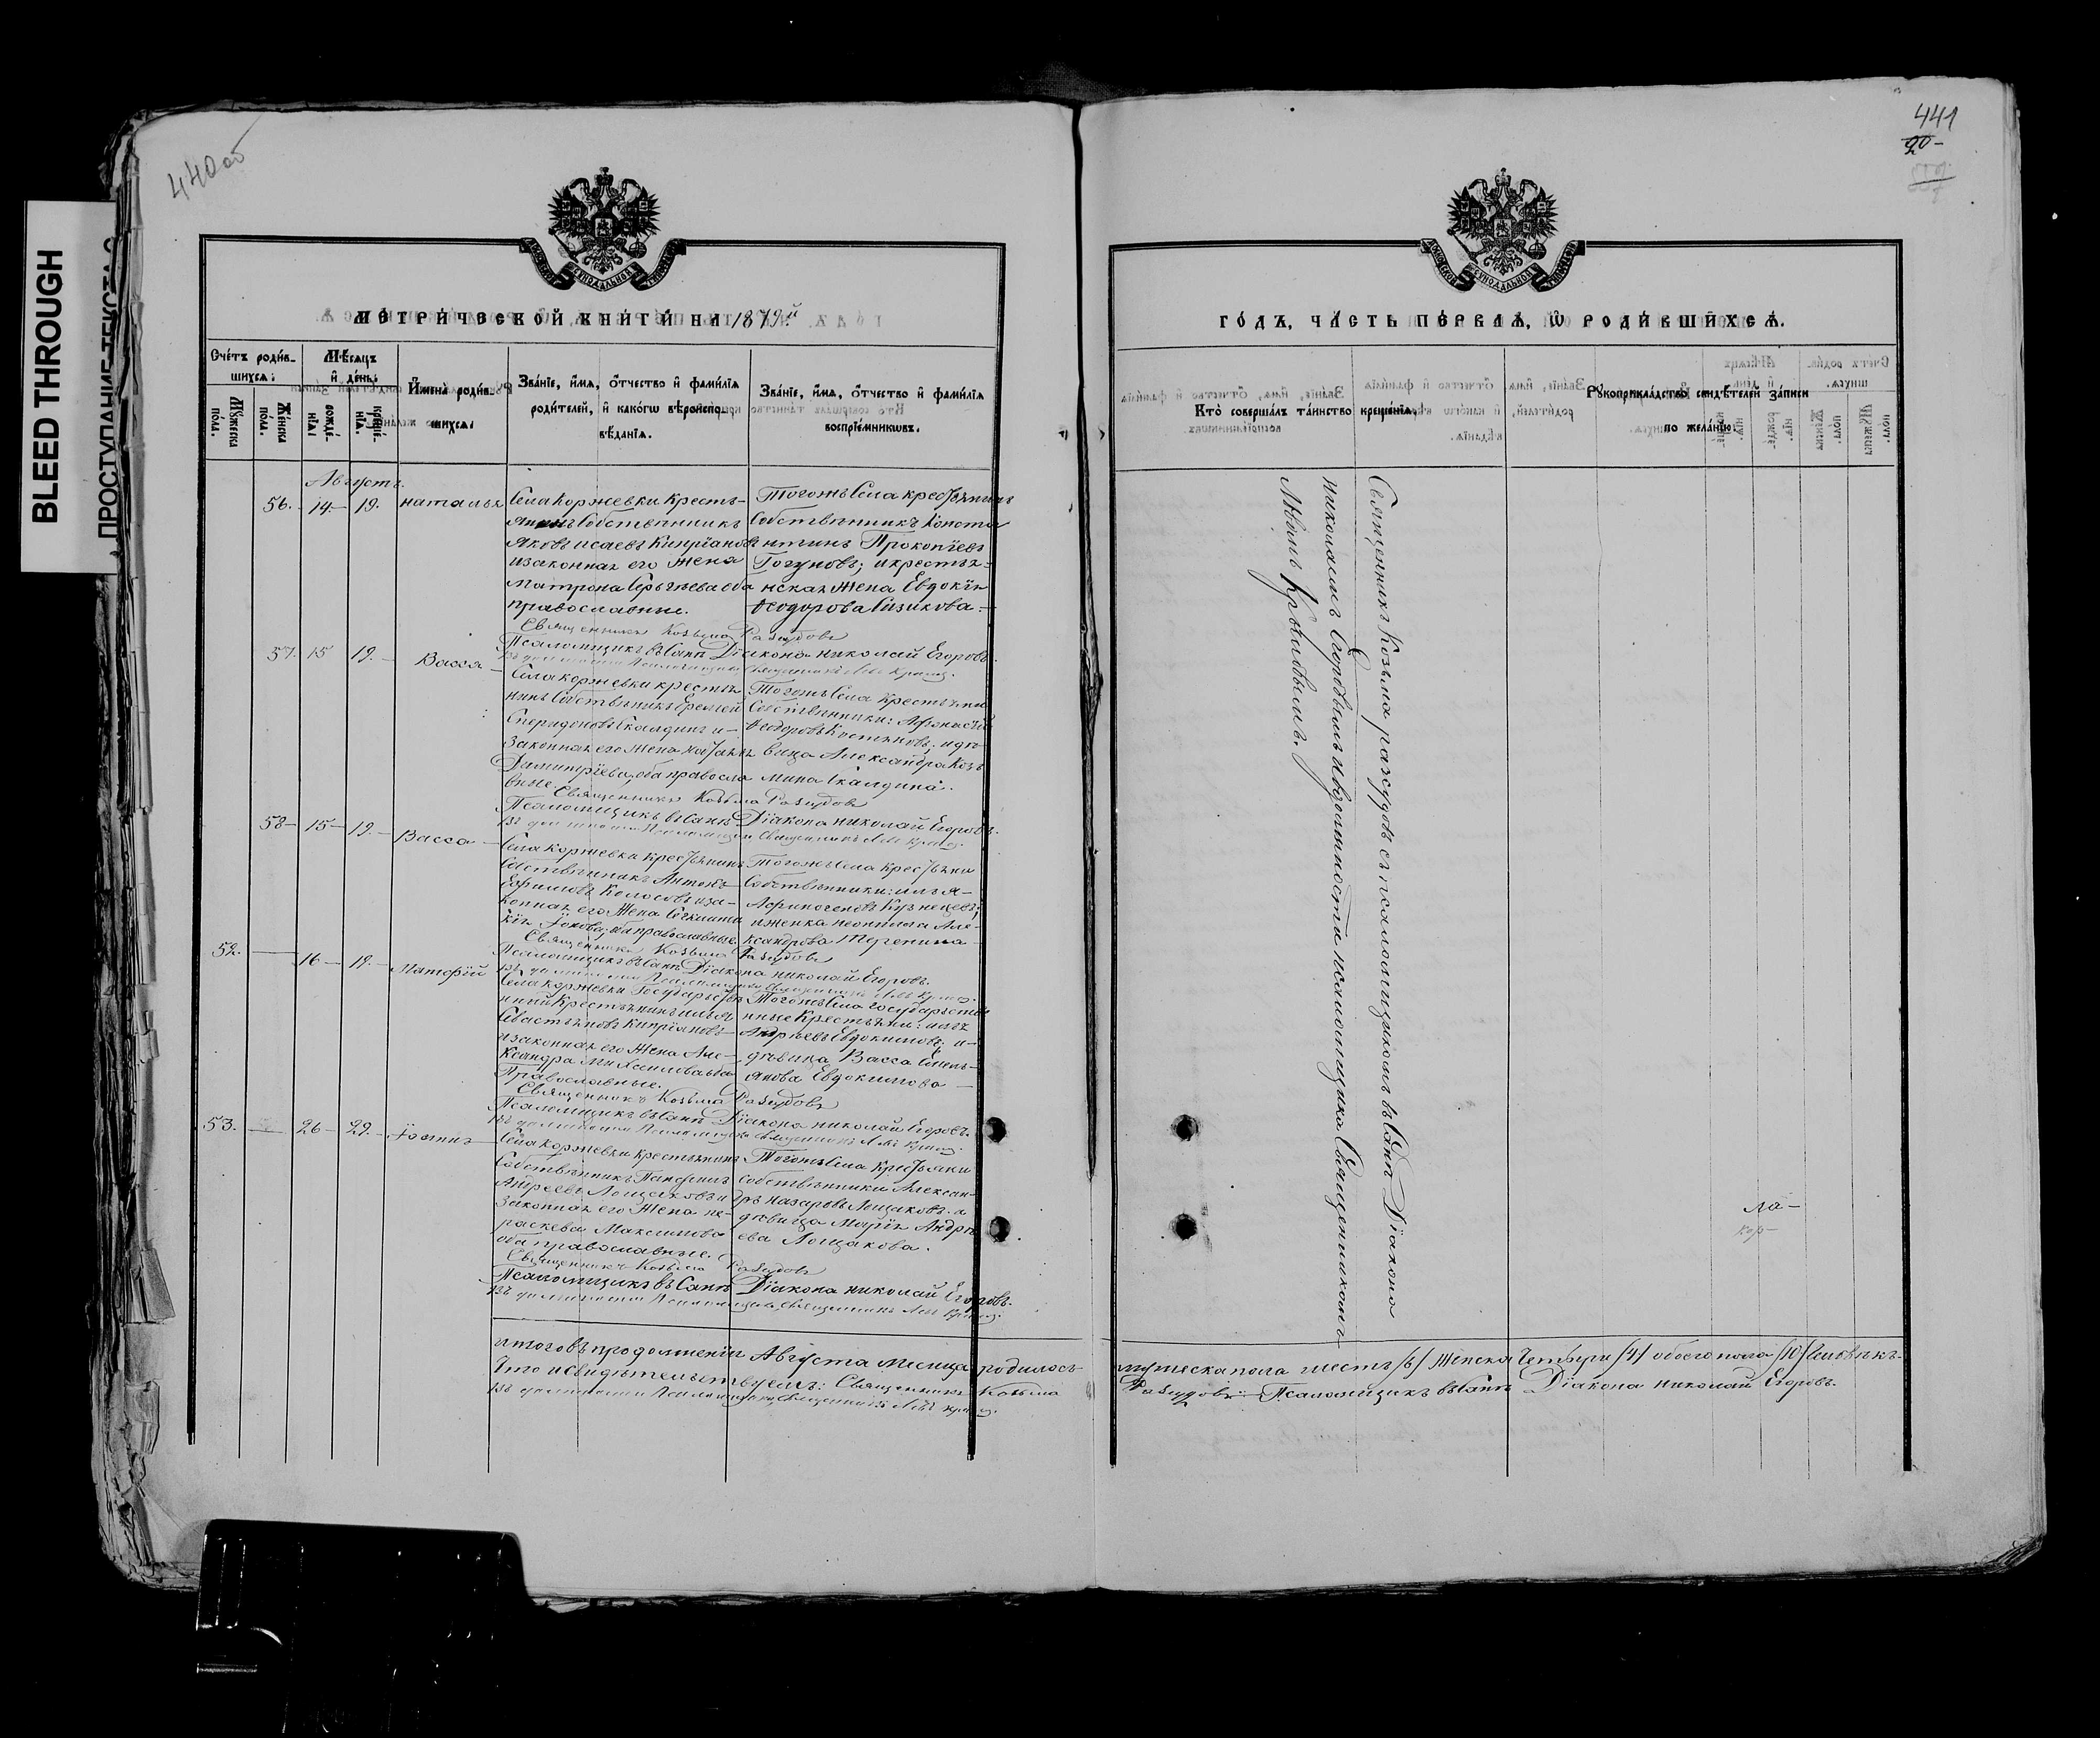 BLEED THROUGH
ПРОСТУПАНИЕ ТЕКСТА С
440 об
441
20-
МЕТРИЧЕСКОЙ КНИГИ НА 1879й
ГОДЪ, ЧАСТЬ ПЕРВАЯ, Ѡ РОДИВШИХСЯ.
Счетъ родив-
шихся:
Мѣсяцъ
и день:
Имена родив-
шихся:
Мужеска
пола.
Женска
пола.
рожде-
нія:
креще-
нія.
Званіе, имя, отчество и фамилія
родителей, и какогѡ вѣроиспо-
вѣданія.
Званіе, имя, отчество и фамилія
воспріемниковъ.
Кто совершалъ таинство крещенія.
Рукоприкладство свидѣтелей записи
по желанію.
Августъ.
56. 14. 19. Наталья
Села Коржевки Кресть-
янинъ Собственникъ
Яковъ Исаевъ Кипріановъ
и законная его Жена
Матрона Сергѣева оба
православные.
Тогожъ Села крестьянинъ
Собственникъ Конста
нтинъ Прокопіевъ
Гогуновъ; и крестья-
нская Жена Евдокія
Ѳеодорова Сизикова.
Священникъ Козьма Разсудовъ
Псаломщикъ въ Санѣ Діакона Николай Егоровъ.
57. 15 19. Васса
Села Коржевки крестья
нинъ Собственникъ Еремей
Спиридоновъ Скалдинъ и
Законная его Жена Наталья
Димитріева, оба правосла
вные.
Тогожъ Села Крестьяни
Собственники: Аѳанасій
Ѳеодоровъ Костяновъ; и дѣ
вица Александра Козь
мина Скалдина.
Священникъ Козьма Разсудовъ
Псаломщикъ въ Санѣ Діакона Николай Егоровъ.
58 15 19. Васса
Села Коржевки Крестьянинъ
Собственникъ Антонъ
Ефимовъ Колосовъ и за-
конная его Жена
Іонова; оба православные.
Тогожъ Села крестьяни
Собственники: Илья
Аѳиногеновъ Кузнецовъ;
и женка Неонила Але-
ксандрова Теренина
Священникъ Козьма Разсудовъ
Псаломщикъ въ Санѣ Діакона Николай Егоровъ.
52. 16 19. Матфій
Села Коржевки Государстве
нный Крестьянинъ Илья
Севастьяновъ Кипріановъ
и законная его Жена Але-
ксандра Михаилова оба
Православные.
Тогожъ Села государстве
нные Крестьяни: Илья
Андреевъ Евдокимовъ, и
дѣвица Васса Емель-
янова Евдокимова
Священникъ Козьма Разсудовъ
Псаломщикъ въ Санѣ Діакона Николай Егоровъ.
53. 26 29. Іоаннъ
Села Коржевки Крестьянинъ
Собственникъ Панфилъ
Андреевъ Лощаковъ и
Законная его Жена Па-
раскева Максимова
оба православные.
Тогожъ Села Крестьяни
собственники Алексан-
дръ Назаровъ Лощаковъ. и
дѣвица Марія Андре
ева Лощакова.
Священникъ Козьма Разсудовъ
Псаломщикъ въ Санѣ Діакона Николай Егоровъ.
Священникъ Козьма Разсудовъ съ псаломщикомъ въ Санѣ Діакона
Николаемъ Егоровымъ и въ должности псаломщика Священникомъ
Львомъ Крыловымъ.
ла-
кор-
Итого въ продолженіи Августа Месяца родилось мужеска пола шесть /6/ Женска Четыри /4/ обоего пола /10/ Человѣкъ.
Что и свидѣтельствуемъ: Священникъ Козьма Разсудовъ Псаломщикъ въ Санѣ Діакона Николай Егоровъ.